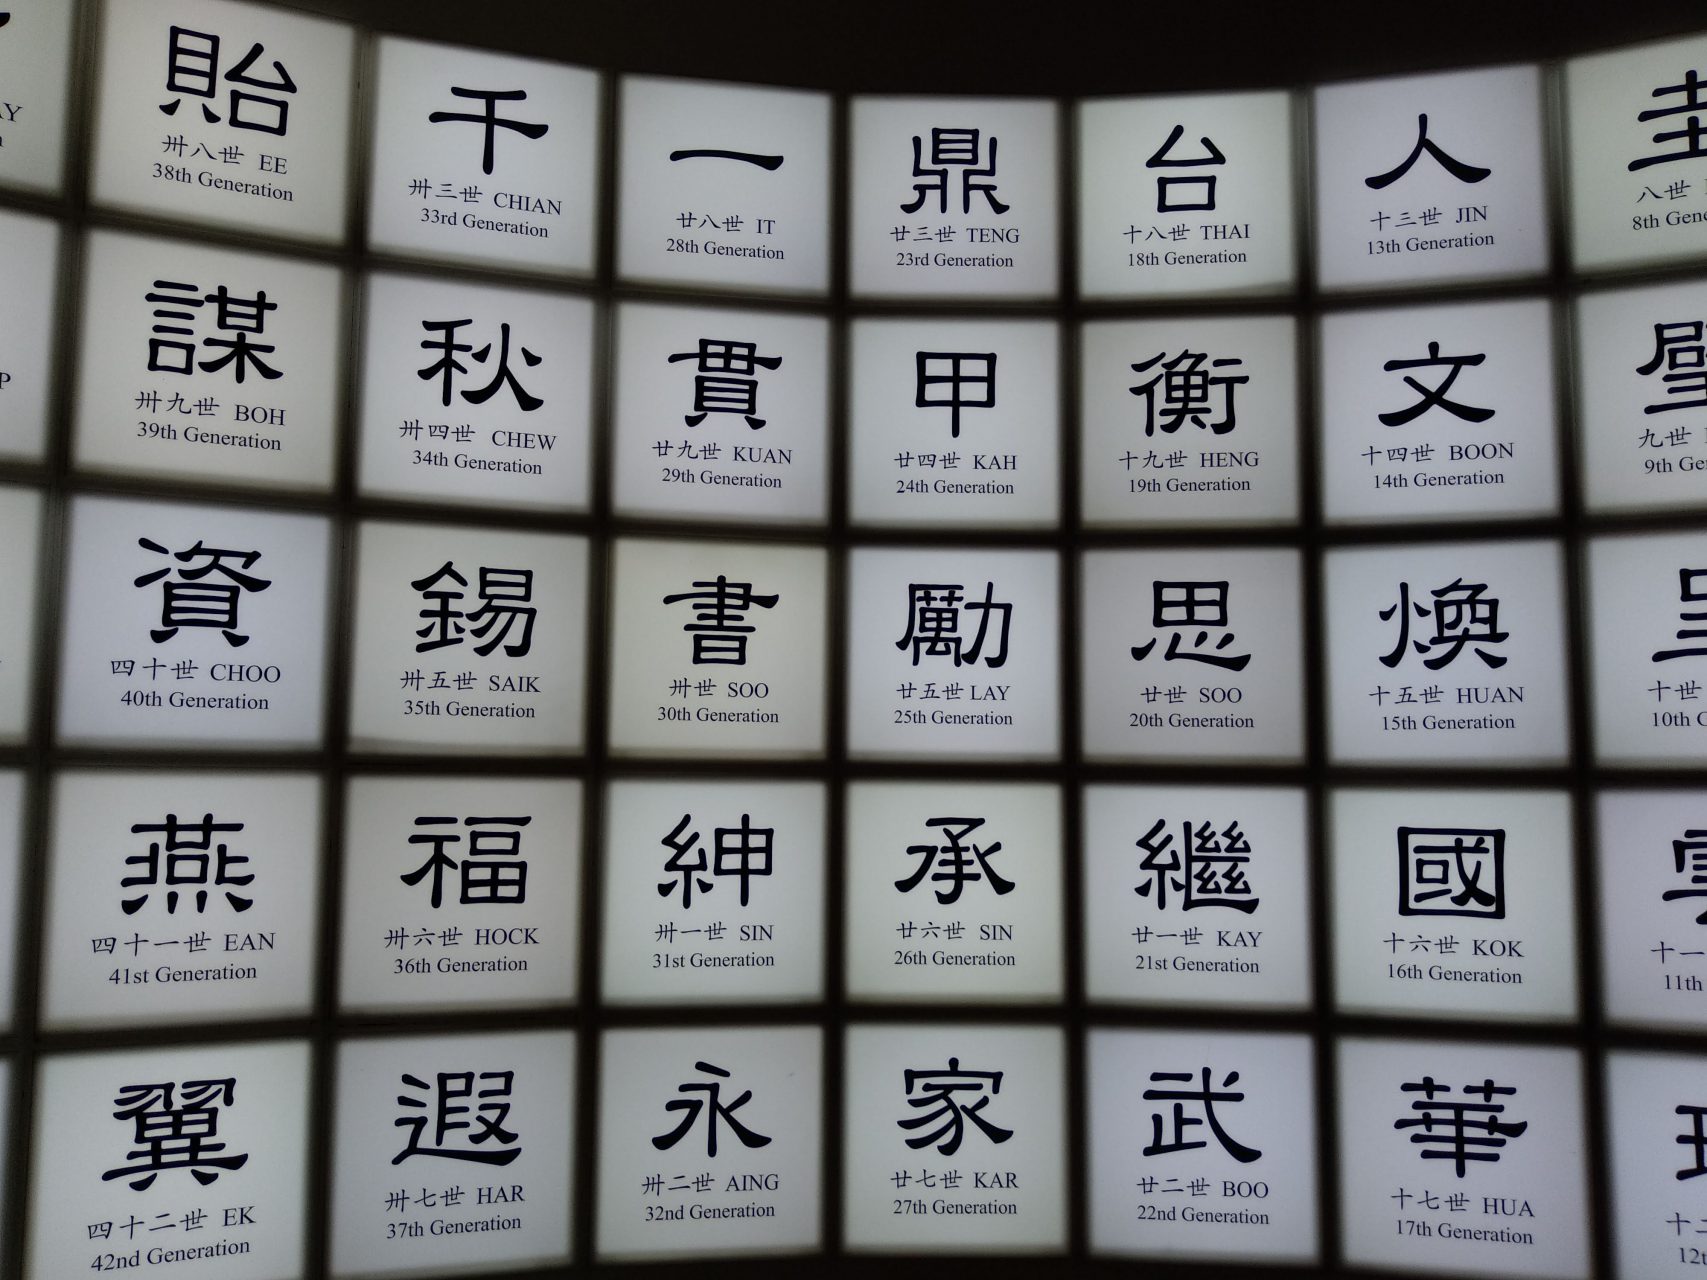 圭
八世
8th
九世
9th
十世
10th
十一
11th
人
十三世 JIN
13th Generation
文
十四世 BOON
14th Generation
煥
十五世 HUAN
15th Generation
國
十六世 KOK
16th Generation
華
十七世 HUA
17th Generation
台
十八世 THAI
18th Generation
衡
十九世 HENG
19th Generation
思
廿世 SOO
20th Generation
繼
廿一世 KAY
21st Generation
武
廿二世 BOO
22nd Generation
鼎
廿三世 TENG
23rd Generation
甲
廿四世 KAH
24th Generation
勵
廿五世 LAY
25th Generation
承
廿六世 SIN
26th Generation
家
廿七世 KAR
27th Generation
一
廿八世 IT
28th Generation
貫
廿九世 KUAN
29th Generation
書
卅世 SOO
30th Generation
紳
卅一世 SIN
31st Generation
永
卅二世 AING
32nd Generation
千
卅三世 CHIAN
33rd Generation
秋
卅四世 CHEW
34th Generation
錫
卅五世 SAIK
35th Generation
福
卅六世 HOCK
36th Generation
遐
卅七世 HAR
37th Generation
貽
卅八世 EE
38th Generation
謀
卅九世 BOH
39th Generation
資
四十世 CHOO
40th Generation
燕
四十一世 EAN
41st Generation
翼
四十二世 EK
42nd Generation